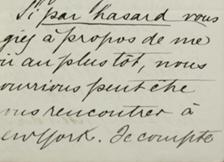 Si, par hasard vous
giez à propos de me
u au plus tôt, nous
ourrions peut être
ous rencontrer à
ew York. Je compte